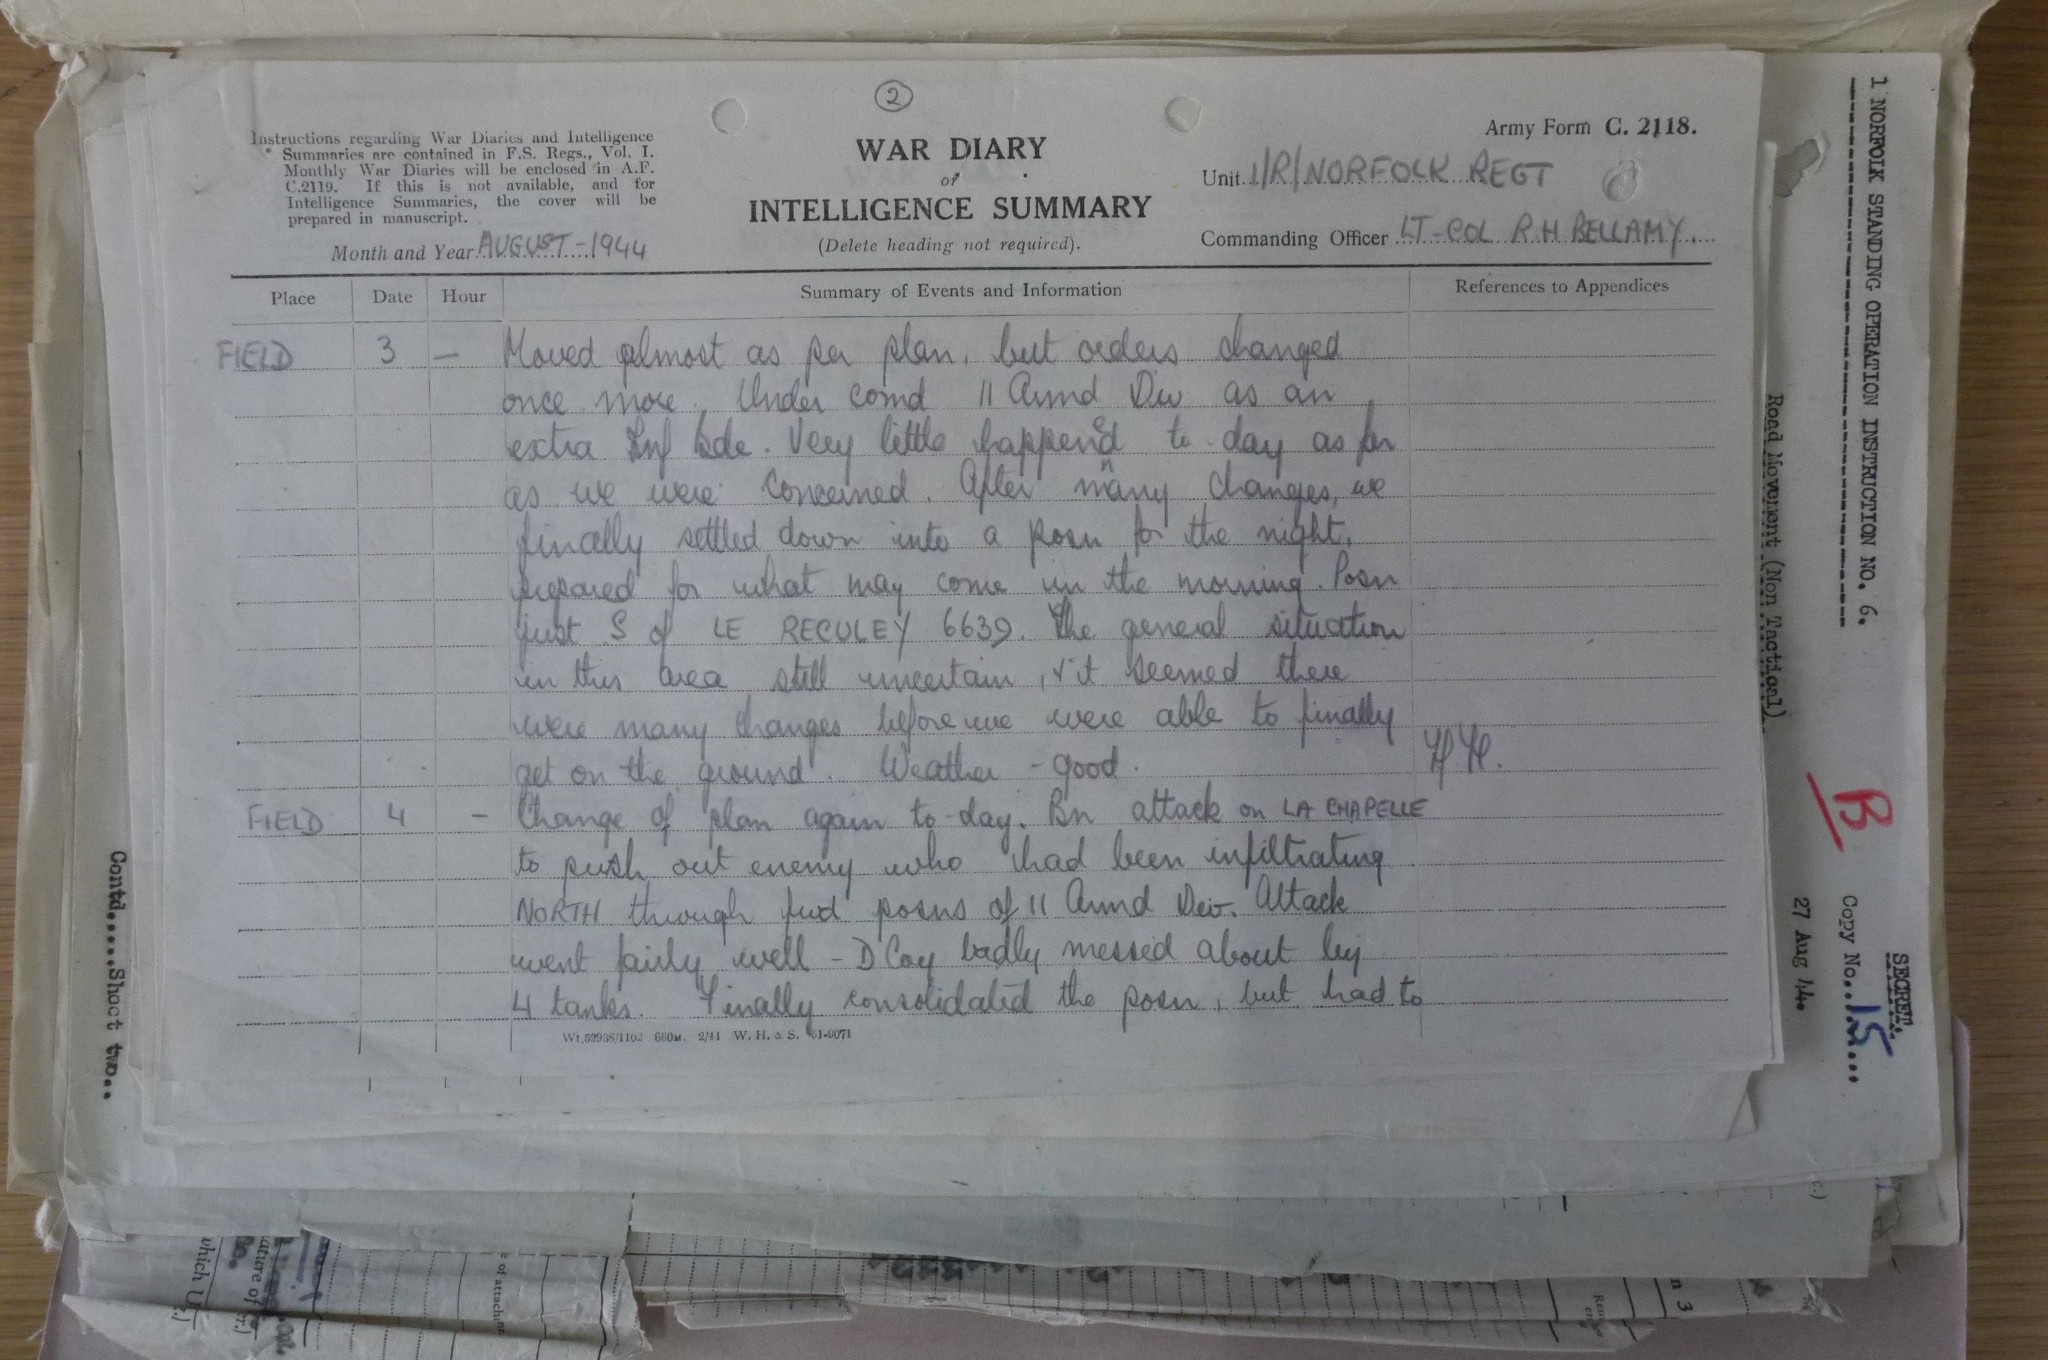 ②
Instructions regarding War Diaries and Intelligence
Summaries are contained in F.S. Regs., Vol. I.
Monthly War Diaries will be enclosed in A.F.
C.2119. If this is not available, and for
Intelligence Summaries, the cover will be
prepared in manuscript.
Month and Year AUGUST-1944
WAR DIARY
or
INTELLIGENCE SUMMARY
(Delete heading not required).
Army Form C. 2118.
Unit 1/R/NORFOLK REGT
Commanding Officer LT-COL R H BELLAMY.
Place Date Hour Summary of Events and Information References to Appendices
FIELD 3 — Moved almost as per plan, but orders changed
once more. Under comd 11 Armd Div as an
extra Inf bde. Very little happened to-day as far
as we were concerned. After many changes, we
finally settled down into a posn for the night,
prepared for what may come in the morning. Posn
just S of LE RECULEY 6639. The general situation
in this area still uncertain, & it seemed there
were many changes before we were able to finally
get on the ground. Weather - good.
FIELD 4 - Change of plan again to-day. Bn attack on LA CHAPELLE
to push out enemy who had been infiltrating
NORTH through fwd posns of 11 Armd Div. Attack
went fairly well - D Coy badly messed about by
4 tanks. Finally consolidated the posn, but had to
Wt.52938/1102 660M. 2/44 W. H. & S. 51-9071
1 NORFOLK STANDING OPERATION INSTRUCTION NO. 6.
Road Movement (Non Tactical)
B
SECRET.
Copy No..15...
27 Aug 44.
Contd.....Sheet two..
which U
ature of
of attachm
n 3